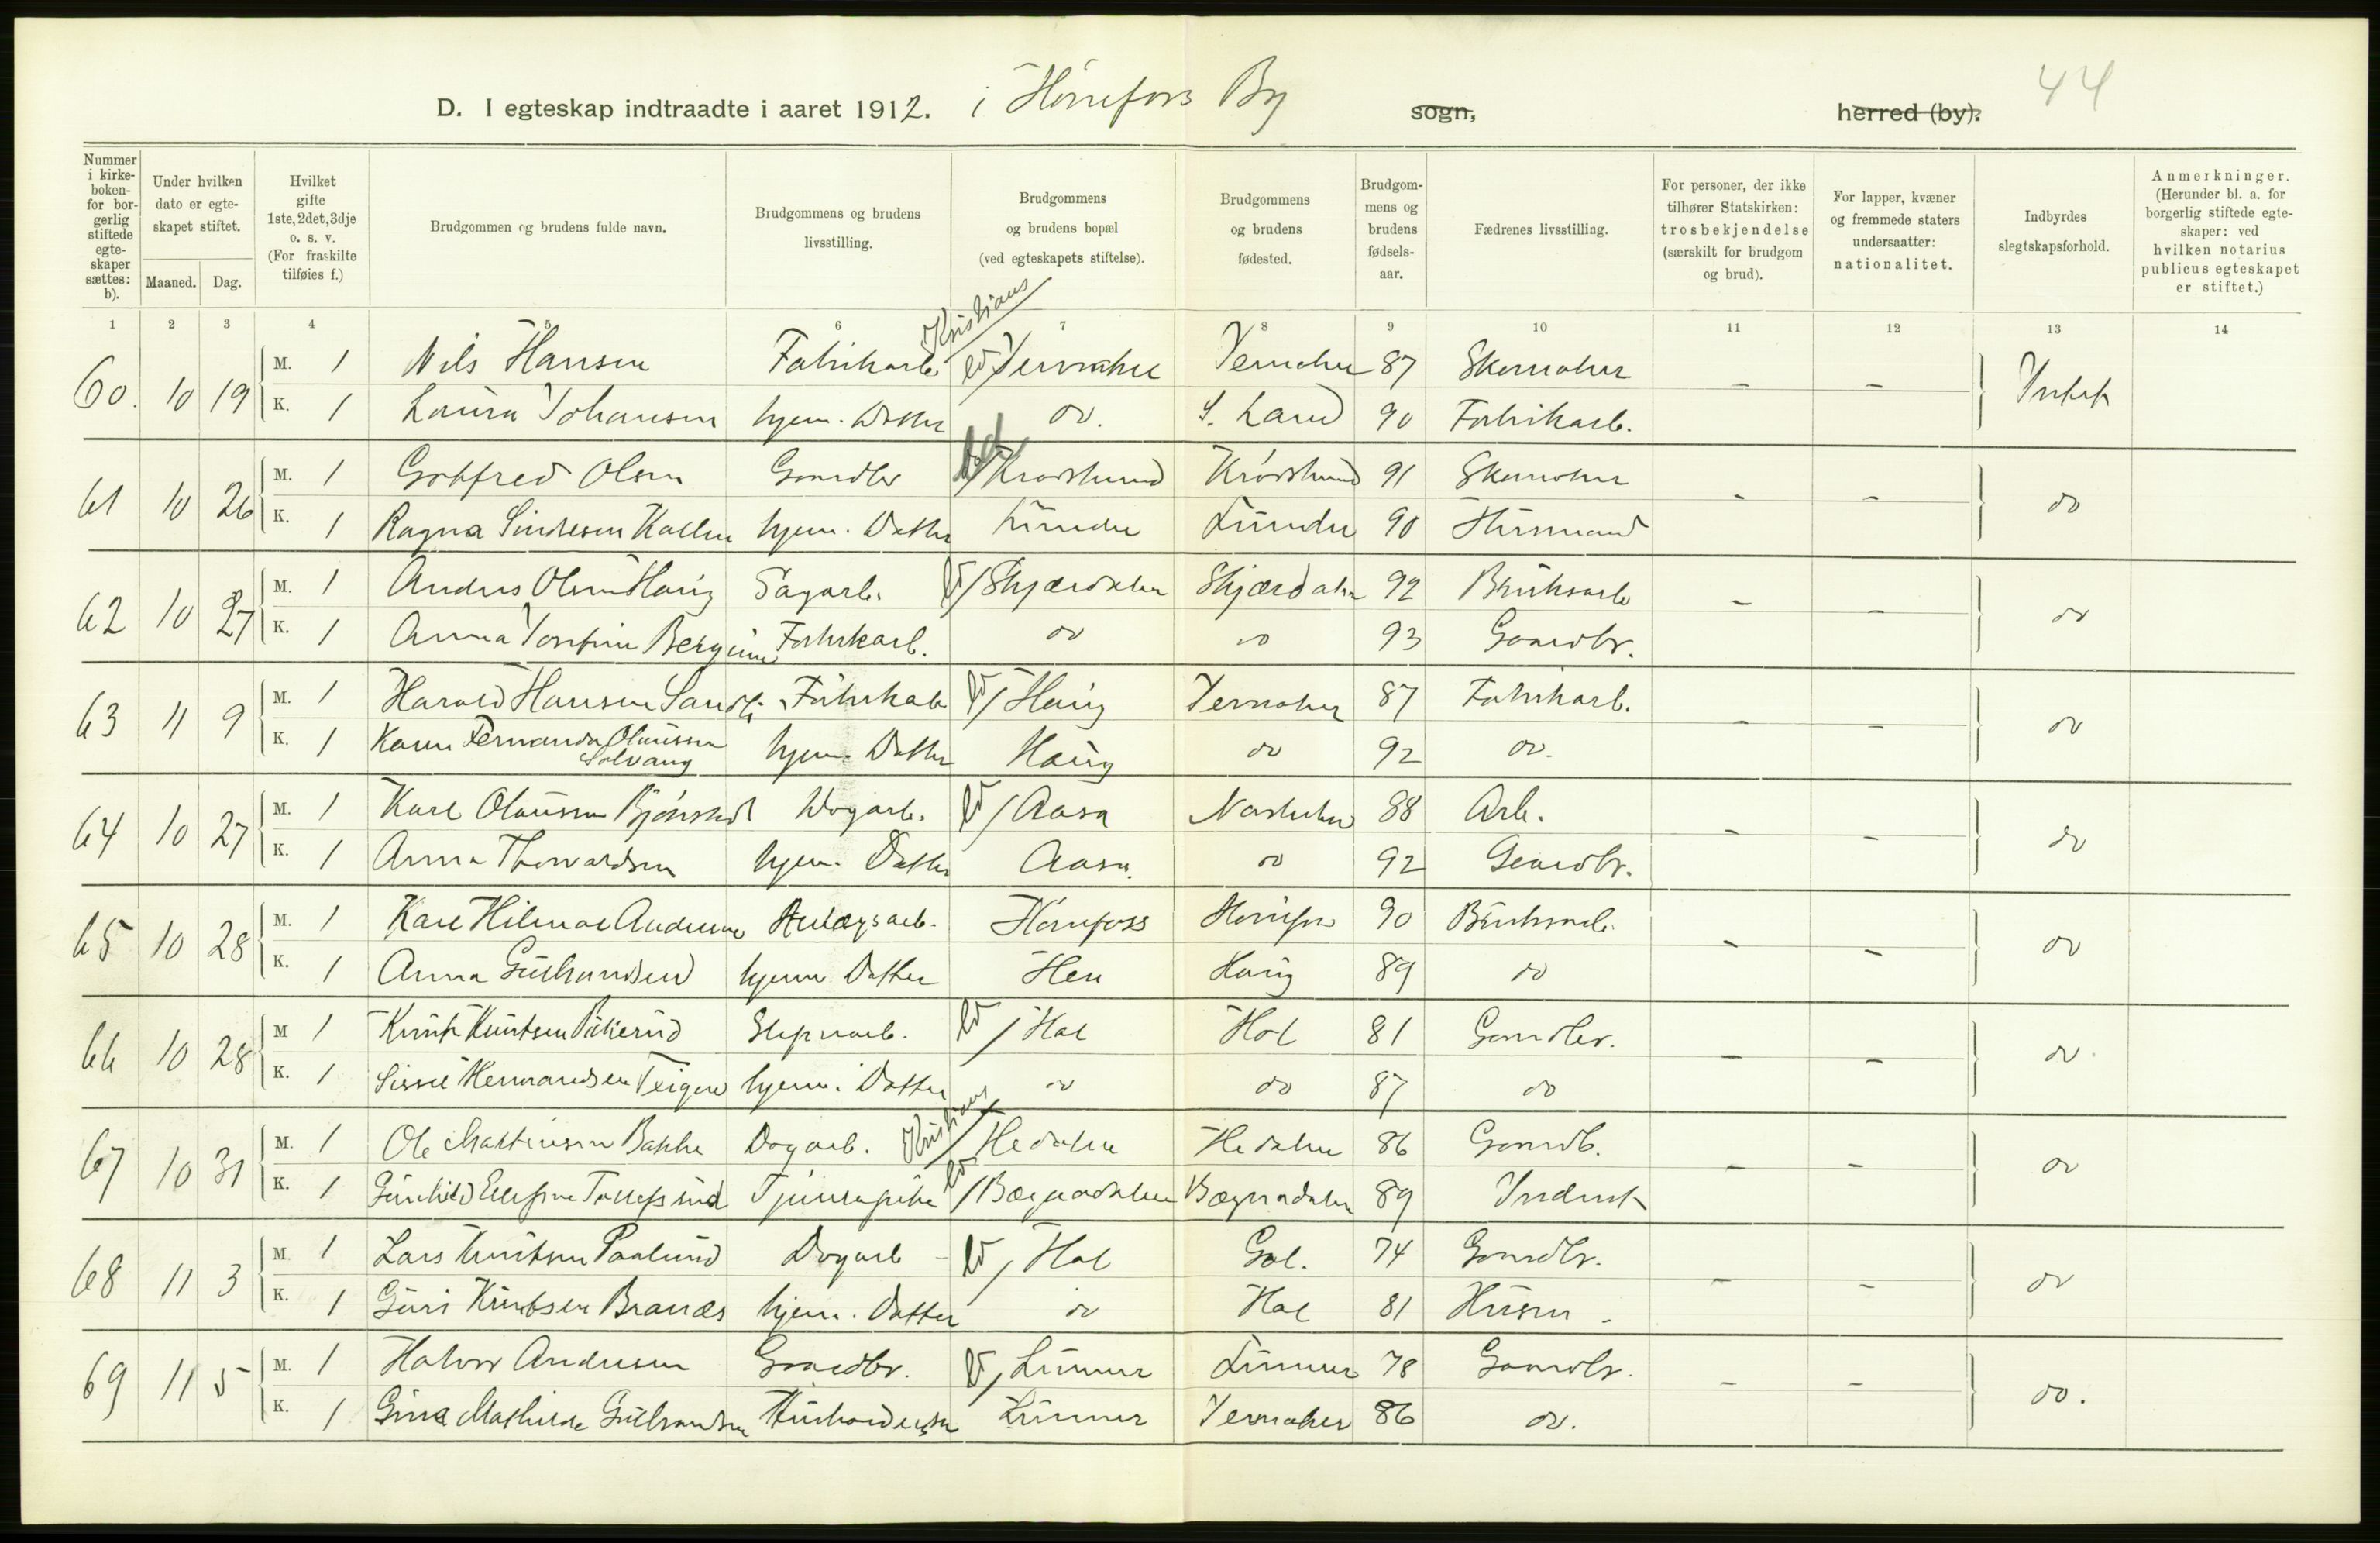 44
D. I egteskap indtraadte i aaret 1912. i Hönefoss By sogn, herred (by).
Nummer i kirke-boken- for bor-gerlig stiftede egte-skaper sættes: b).
Under hvilken dato er egte-skapet stiftet.
Maaned. Dag.
Hvilket gifte 1ste, 2det, 3dje o. s. v. (For fraskilte tilføies f.)
Brudgommen og brudens fulde navn.
Brudgommens og brudens livsstilling.
Brudgommens og brudens bopæl (ved egteskapets stiftelse).
Brudgommens og brudens fødested.
Brudgom-mens og brudens fødsels-aar.
Fædrenes livsstilling.
For personer, der ikke tilhører Statskirken: trosbekjendelse (særskilt for brudgom og brud).
For lapper, kvæner og fremmede staters undersaatter: nationalitet.
Indbyrdes slegtskapsforhold.
Anmerkninger. (Herunder bl. a. for borgerlig stiftede egte-skaper: ved hvilken notarius publicus egteskapet er stiftet.)
1 2 3 4 5 6 7 8 9 10 11 12 13 14
Kristians
60. 10 19 M. 1 Nils Hansen Fabrikarb. Jevnaker Jevnaker 87 Skomaker - - Intet
K. 1 Laura Johansen hjem. Datter do. S. Land 90 Fabrikarb.
61 10 26 M. 1 Gotfred Olsen Gaardbr Krødsherred Krødsherred 91 Skomaker - - do
K. 1 Ragna Hallen hjem. Datter Lunder Lunder 90 Husmand
62 10 27 M. 1 Anders Olsen Haug Sagarb. Skjærdalen Skjærdalen 92 Bruksarb - - do
K. 1 Anna Josefine Fabrikarb. do do 93 Gaardbr.
63 11 9 M. 1 Harald Hansen Fabrikarb / Haug Jevnaker 87 Fabrikarb. - - do
K. 1 Karen Fernanda Olaussen Solvang hjem. Datter Haug do 92 do.
64 10 27 M. 1 Karl Olaussen Dagarb. / Aasa Norderhov 88 Arb. - - do
K. 1 Anna Thorvaldsen hjem. Datter Aasa. do 92 Gaardbr.
65 10 28 M. 1 Karl Hilmar Andersen Anlægsarb. Hönefoss Hönefos 90 Bruksarb. - - do
K. 1 Anna Gulbrandsen hjem Datter Hen Haug 89 do
66 10 28 M 1 Knut Knutsen / Hol Hol 81 Gaardbr. - - do
K. 1 Sissel Hermandsen Teigen hjem. Datter do do 87 do
Kristians
67 10 31 M. 1 Ole Martinsen Bakke Dagarb. / Hedalen Hedalen 86 Gaardb. - - do
K. 1 Gunhild Tjenestepike / Bægnadalen Bægnadalen 89 Inderst
68 11 3 M. 1 Lars Knutsen Dagarb - / Hol Gol. 74 Gaardbr. - - do
K. 1 Guri Knutsen hjem. Datter do Hol 81 Husm -
69 11 5 M. 1 Halvor Andersen Gaardbr. / Lunner Lunner 78 Gaardbr. - - do.
K. 1 Gina Mathilde Gulbrandsen Lunner Jevnaker 86 do.